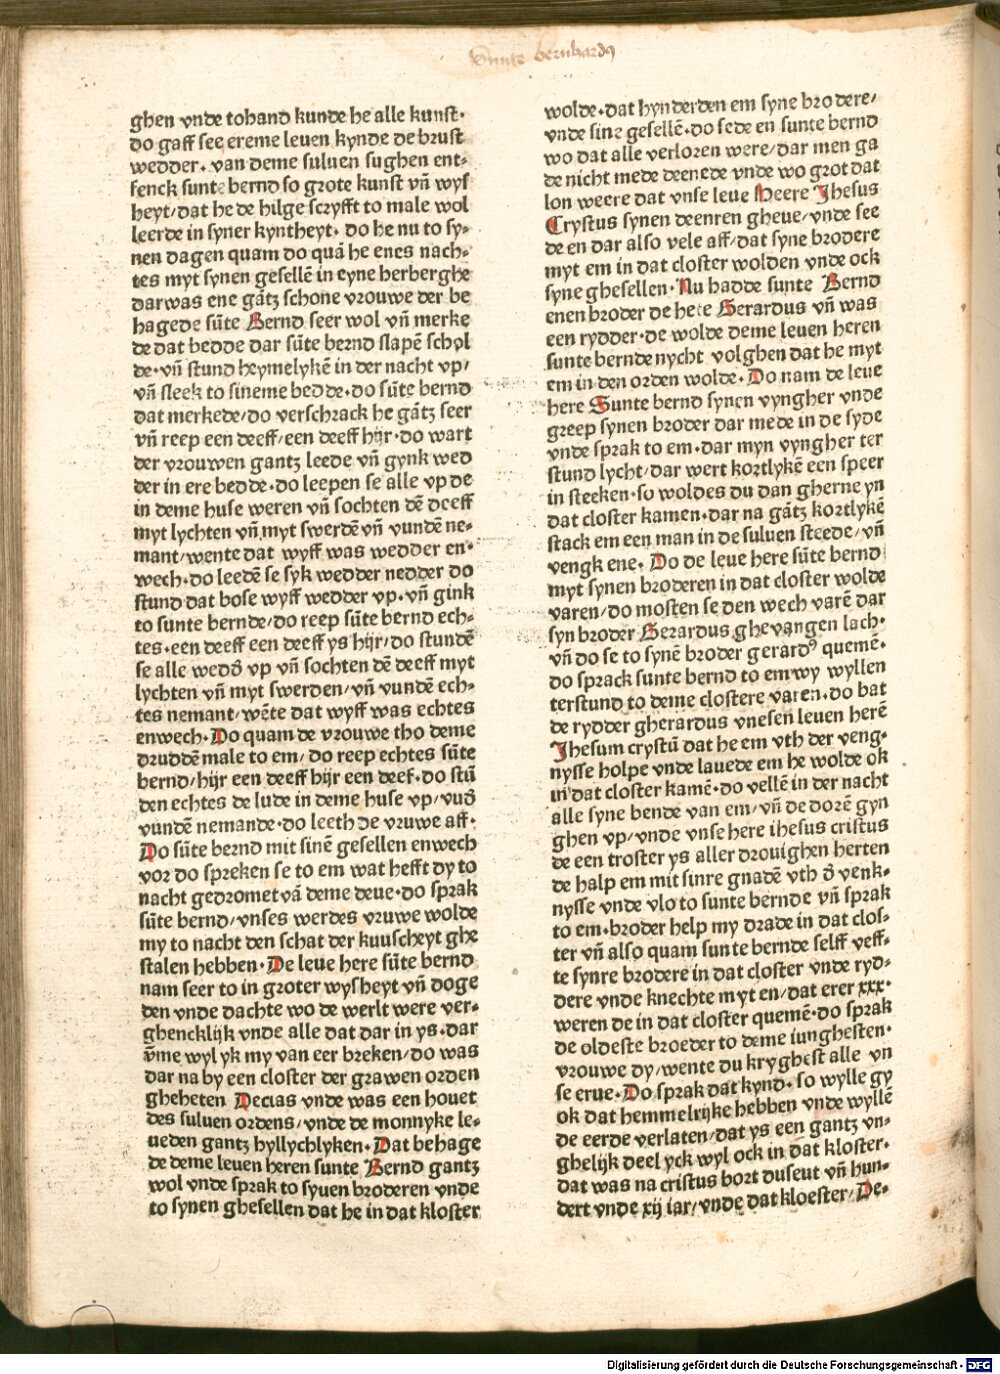 Sunte bernhardꝰ
ghen vnde tohand kunde he alle kunst·
do gaff see ereme leuen kynde de brust
wedder. van deme suluen sughen ent⸗
fenck sunte bernd so grote kunst vn̄ wys
heyt/dat he de hilge scryfft to male wol
leerde in syner kyntheyt. do he nu to sy⸗
nen dagen quam do quā he enes nach⸗
tes myt synen gesellē in eyne herberghe
dar was ene gātz schone vrouwe der be
hagede sūte Bernd seer wol vn̄ merke
de dat bedde dar sūte bernd slapē schol
de·vn̄ stund heymelykē in der nacht vp/
vn̄ sleek to sineme bedde·do sūte bernd
dat merkede/do verschrack he gātz seer
vn̄ reep een deeff/een deeff hijr·do wart
der vrouwen gantz leede vn̄ gynk wed
der in ere bedde·do leepen se alle vp de
in deme huse weren vn̄ sochten dē deeff
myt lychten vn̄ myt swerdē vn̄ vundē ne⸗
mant/wente dat wyff was wedder en⸗
wech·do leedē se syk wedder nedder do
stund dat bose wyff wedder vp·vn̄ gink
to sunte bernde/do reep sūte bernd ech⸗
tes·een deeff een deeff ys hijr/do stundē
se alle wedd̄ vp vn̄ sochten dē deeff myt
lychten vn̄ myt swerden/vn̄ vundē ech⸗
tes nemant/wēte dat wyff was echtes
enwech·Do quam de vrouwe tho deme
druddē male to em/do reep echtes sūte
bernd/hijr een deeff hijr een deef·do stū
den echtes de lude in deme huse vp/vud̄
vundē nemande·do leeth de vruwe aff·
Do sūte bernd mit sinē gesellen enwech
vor do spreken se to em wat hefft dy to
nacht gedromet vā deme deue·do sprak
sūte bernd/vnses werdes vruwe wolde
my to nacht den schat der kuuscheyt ghe
stalen hebben·De leue here sūte bernd
nam seer to in groter wysheyt vn̄ doge
den vnde dachte wo de werlt were ver⸗
ghencklijk vnde alle dat dar in ys·dar
v̄me wyl yk my van eer breken/do was
dar na by een closter der grawen orden
gheheten Decias vnde was een houet
des suluen ordens/vnde de monnyke le⸗
ueden gantz hyllychlyken·Dat behage
de deme leuen heren sunte Bernd gantz
wol vnde sprak to syuen broderen vnde
to synen ghesellen dat he in dat kloster
wolde·dat hynderden em syne brodere/
vnde sine gesellē·do sede en sunte bernd
wo dat alle verloren were/dar men ga
de nicht mede deenede vnde wo grot dat
lon weere dat vnse leue Heere Jhesus
Crystus synen deenren gheue/vnde see
de en dar also vele aff/dat syne brodere
myt em in dat closter wolden vnde ock
syne ghesellen·Nu hadde sunte Bernd
enen broder de hete Gerardus vn̄ was
een rydder·de wolde deme leuen heren
sunte bernde nycht volghen dat he myt
em in den orden wolde·Do nam de leue
here Sunte bernd synen vyngher vnde
greep synen broder dar mede in de syde
vnde sprak to em·dar myn vyngher ter
stund lycht/dar wert kortlykē een speer
in steeken·so woldes du dan gherne yn
dat closter kamen·dar na gātz kortlykē
stack em een man in de suluen steede/vn̄
vengk ene· Do de leue here sūte bernd
myt synen broderen in dat closter wolde
varen/do mosten se den wech varē dar
syn broder Gerardus ghevangen lach·
vn̄ do se to synē broder gerardꝰ quemē·
do sprack sunte bernd to em wy wyllen
terstund to deme clostere varen·do bat
de rydder gherardus vnesen leuen herē
Jhesum crystū dat he em vth der veng⸗
nysse holpe vnde lauede em he wolde ok
in dat closter kamē·do vellē in der nacht
alle syne bende van em/vn̄ de dorē gyn
ghen vp/vnde vnse here ihesus cristus
de een troster ys aller drouighen herten
de halp em mit sinre gnadē vth d̄ venk⸗
nysse vnde vlo to sunte bernde vn̄ sprak
to em·broder help my drade in dat clos⸗
ter vn̄ also quam sunte bernde selff veff⸗
te synre brodere in dat closter vnde ryd⸗
dere vnde knechte myt en/dat erer xxx·
weren de in dat closter quemē·do sprak
de oldeste broeder to deme iunghesten·
vrouwe dy/wente du kryghest alle vn
se erue·Do sprak dat kynd·so wylle gy
ok dat hemmelrijke hebben vnde wyllē
de eerde verlaten/dat ys een gantz vn⸗
ghelijk deel yck wyl ock in dat kloster·
dat was na cristus bort duseut vn̄ hun⸗
dert vnde xij iar/vnde dat kloester/De⸗
Digitalisierung gefördert durch die Deutsche Forschungsgemeinschaft - DFG